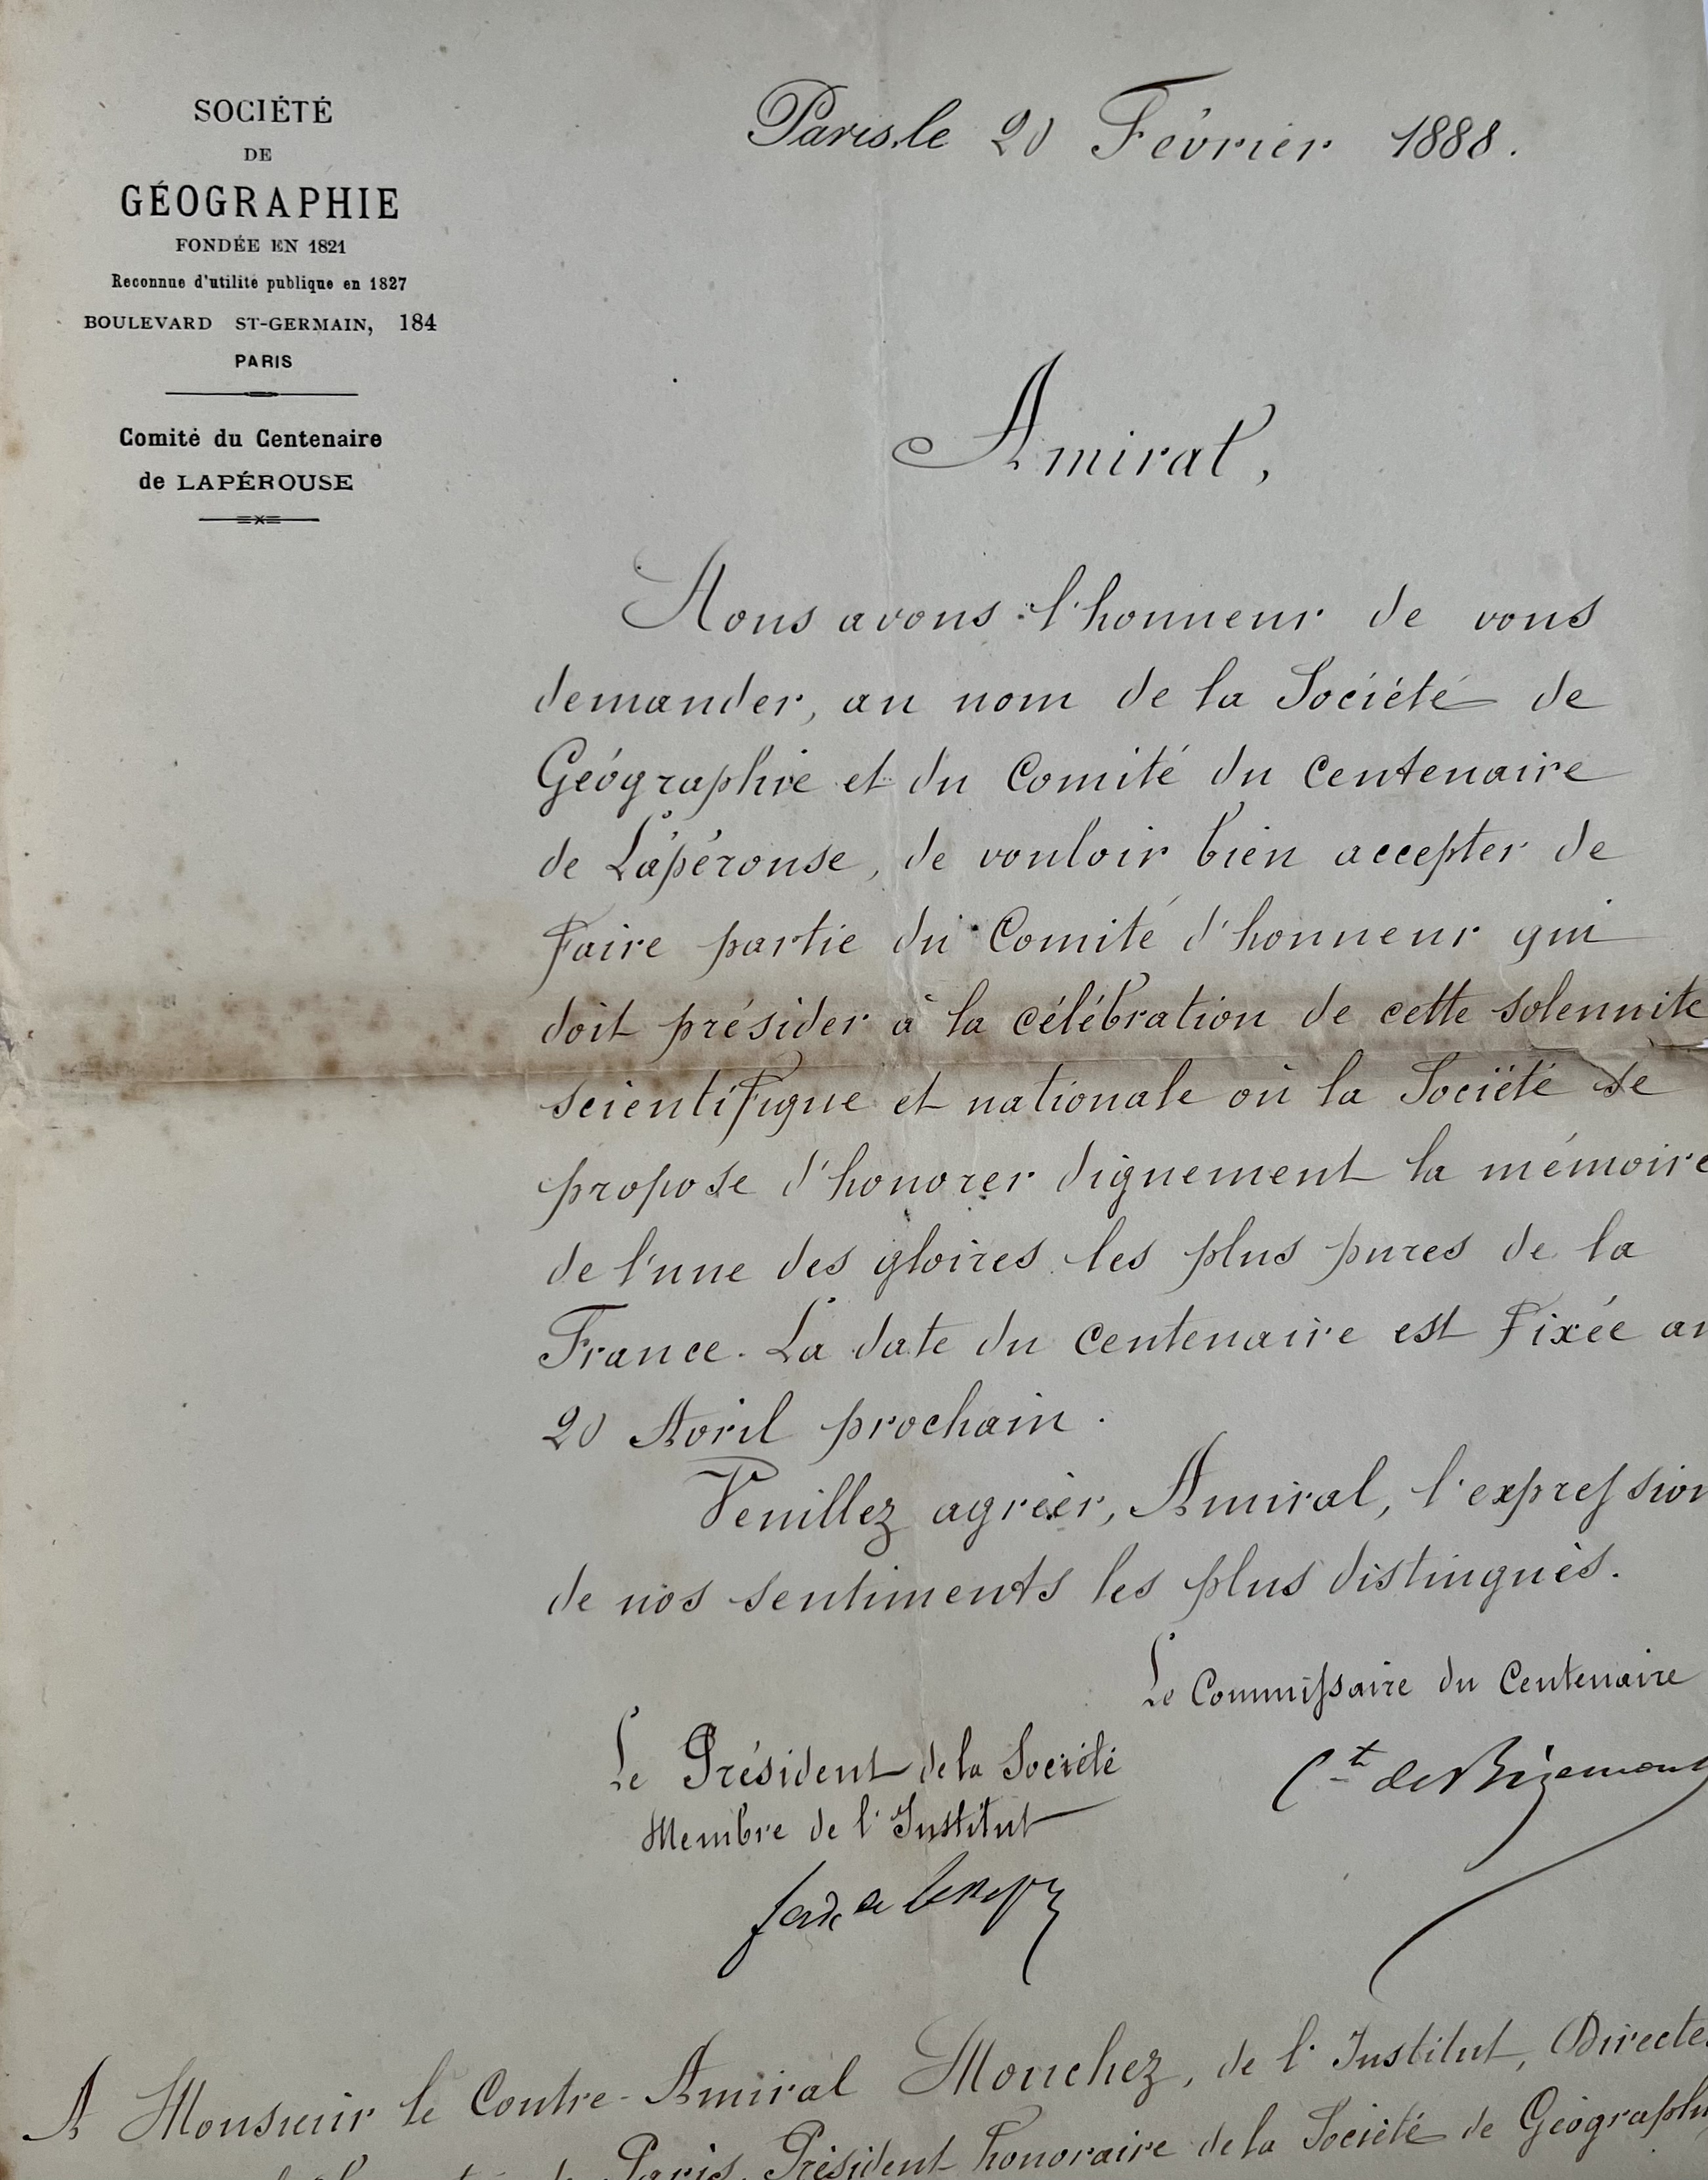 SOCIÉTÉ
DE
GÉOGRAPHIE
FONDÉE EN 1821
Reconnue d'utilité publique en 1827
BOULEVARD ST-GERMAIN, 184
PARIS
Comité du Centenaire
de LAPÉROUSE
Paris, le 20 Février 1888.
Amiral,
Nous avons l'honneur de vous
demander, au nom de la Société de
Géographie et du Comité du Centenaire
de Lapérouse, de vouloir bien accepter de
faire partie du Comité d'honneur qui
doit présider à la célébration de cette solennité
scientifique et nationale où la Société se
propose d'honorer dignement la mémoire
de l'une des gloires les plus pures de la
France. La date du Centenaire est fixée au
20 Avril prochain.
Veuillez agréer, Amiral, l'expression
de nos sentiments les plus distingués.
Le Commissaire du Centenaire
Ct de Bizemont
Le Président de la Société
Membre de l'Institut
ferd de Lesseps
A Monsieur le Contre-Amiral Mouchez, de l'Institut, Directe
Paris, Président honoraire de la Société de Géographie